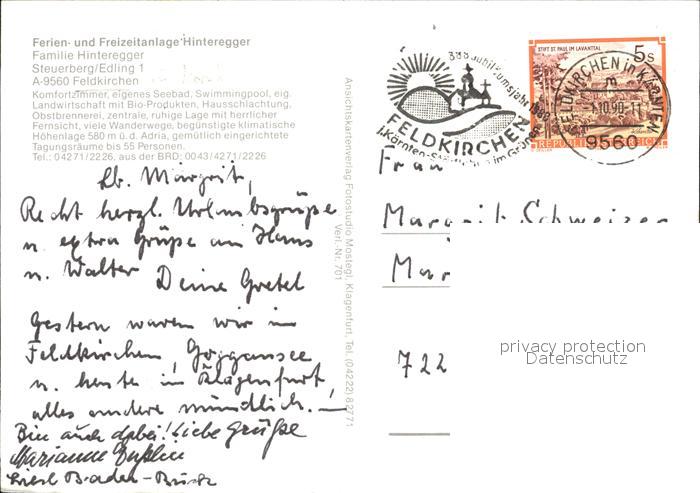 Ferien- und Freizeitanlage Hinteregger
Familie Hinteregger
Steuerberg/Edling 1
A-9560 Feldkirchen
Komfortzimmer, eigenes Seebad, Swimmingpool, eig.
Landwirtschaft mit Bio-Produkten, Hausschlachtung,
Obstbrennerei, zentrale, ruhige Lage mit herrlicher
Fernsicht, viele Wanderwege, begünstigte klimatische
Höhenlage 580 m ü. d. Adria, gemütlich eingerichtete
Tagungsräume bis 55 Personen.
Tel.: 04271/2226, aus der BRD: 0043/4271/2226
Lb. Margrit,
Recht herzl. Urlaubsgrüße
u. extra Grüße an Hans
u. Walter Deine Gretel
Gestern waren wir in
Feldkirchen, Goggausee
u. heute in Klagenfurt,
alles andere mündlich.
Bin auch dabei! Liebe Grüße
Marianne
Liesl Baden-
Ansichtskartenverlag Fotostudio Mostegl, Klagenfurt, Tel. (04222) 82771
Verl.-Nr. 701
FELDKIRCHEN
i. Kärnten im Grünen
STIFT ST. PAUL IM LAVANTTAL
5 S
REPUBLIK ÖSTERREICH
FELDKIRCHEN in KÄRNTEN
m
1.10.90-11
9560
Frau
Margrit Schweizer
Mar
722
privacy protection
Datenschutz